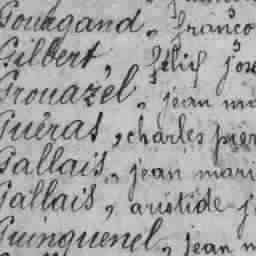 Gouragand, franço
Gilbert, félix jose
Grouazel, jean ma
Guéras, charles pier
Gallais, jean mari
Gallais, aristide j
Guinguenel, jean m